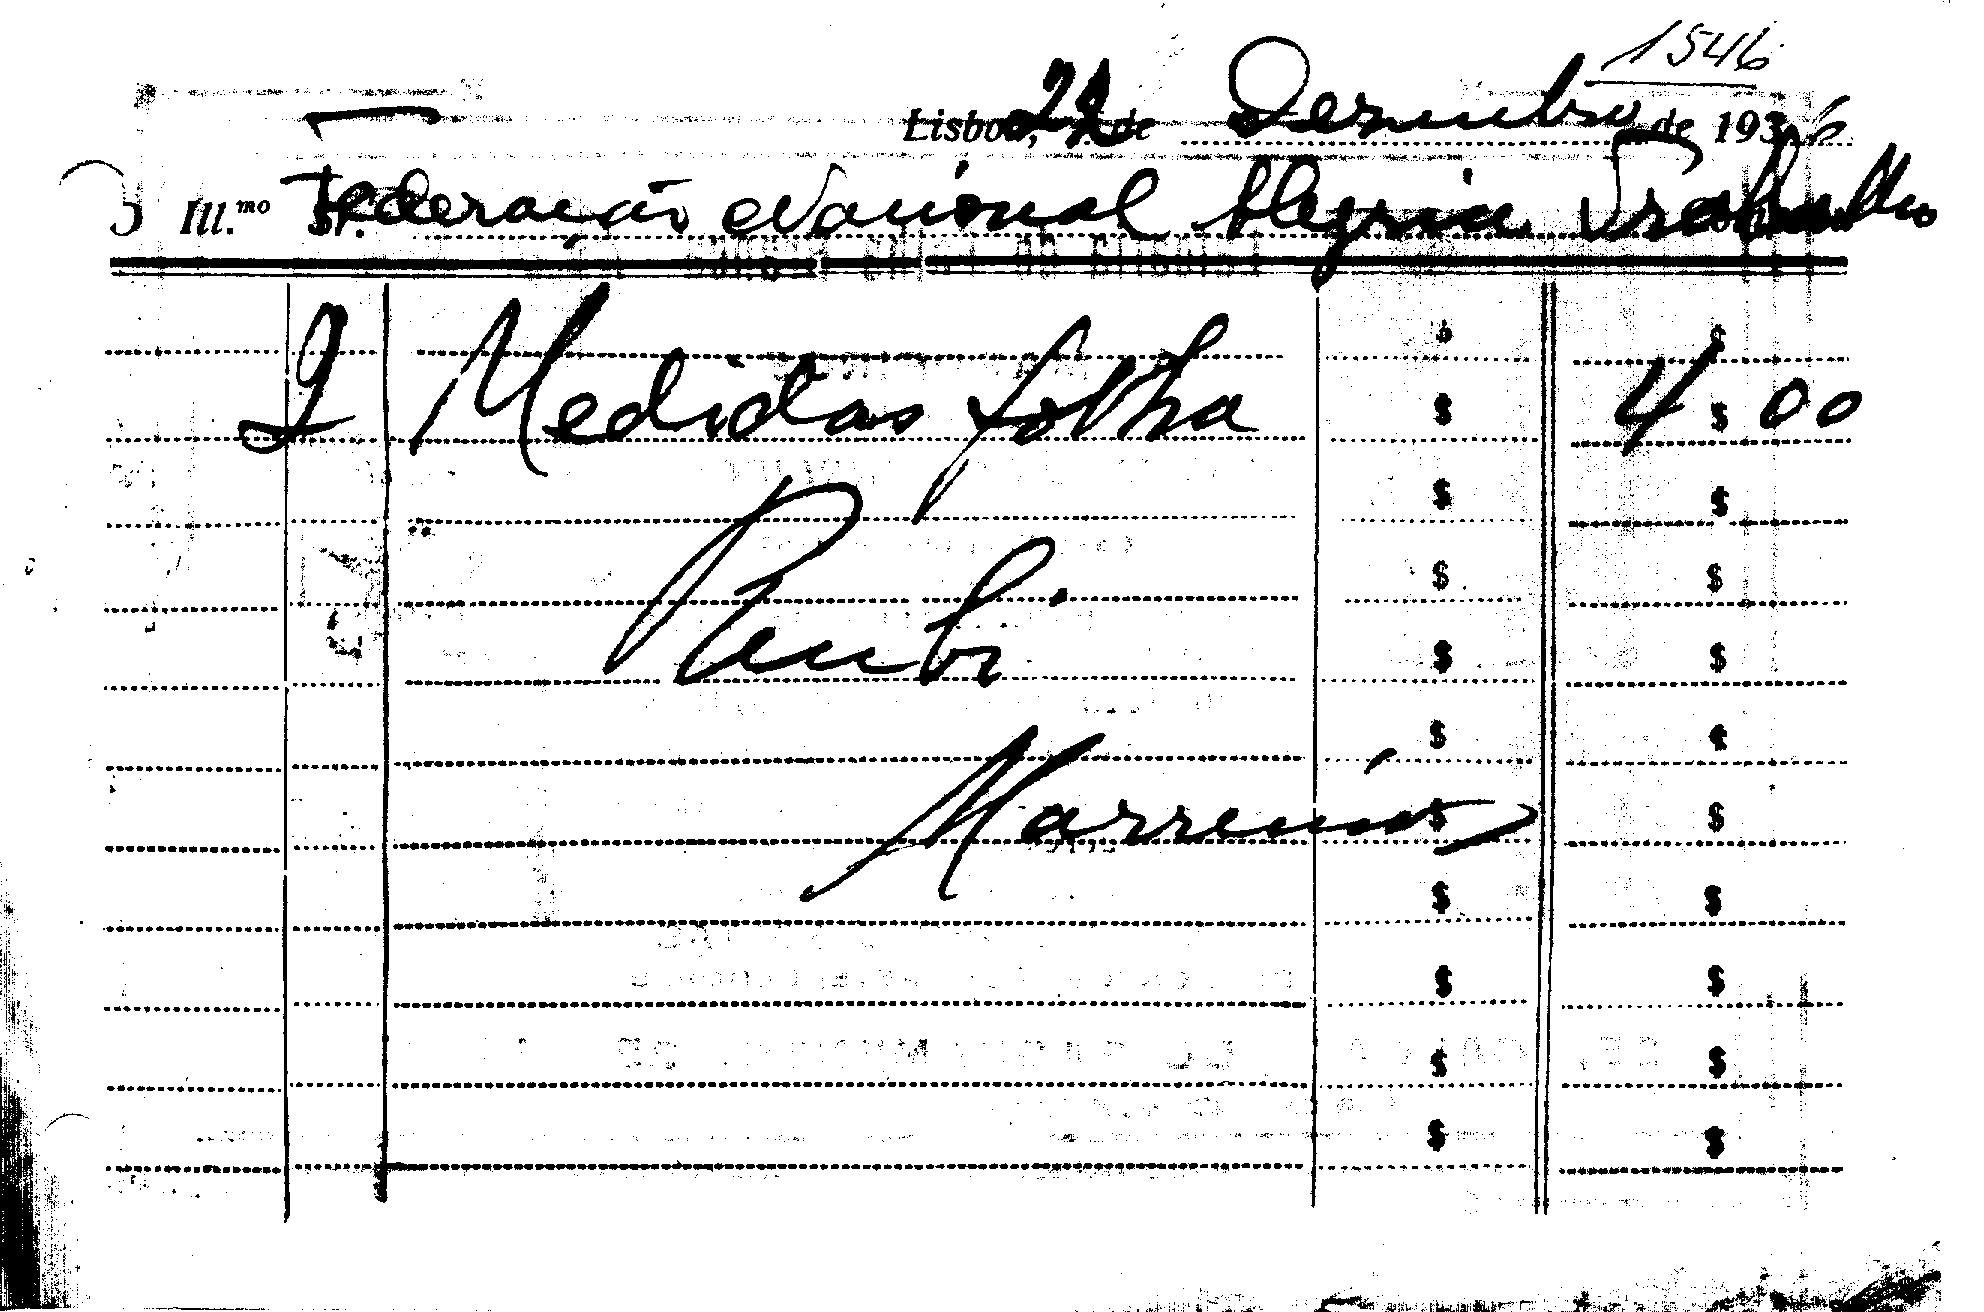 1546
Lisboa, 22 de Dezembro de 1936
Ill.mo Sr. Federação Nacional Alegria Trabalho
$ $
2 Medidas folha $ 4$00
$ $
$ $
$ $
$ $
$ $
$ $
$ $
$ $
$ $